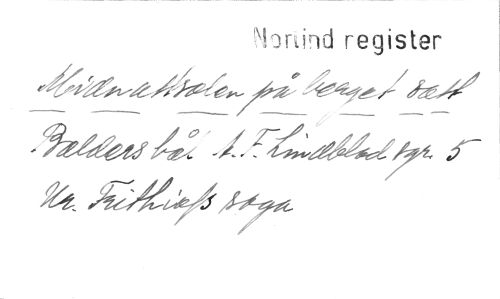 Norlind register
Midnattsolen på berget satt
Balders bål A. F. Lindblad sgr. 5
Ur. Frithiofs saga